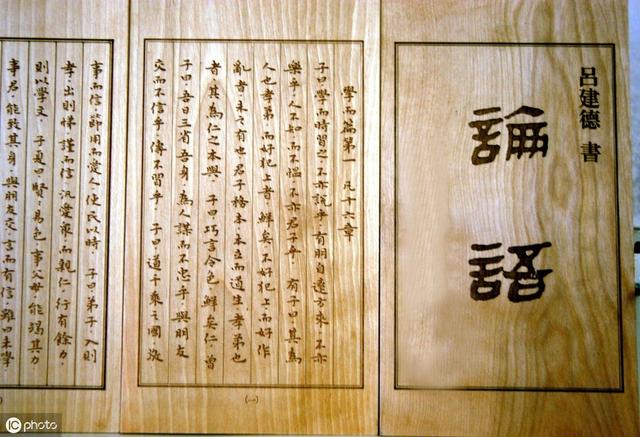 呂建德 書
論語
學而篇第一 凡十六章
子曰學而時習之不亦說乎有朋自遠方來不亦
樂乎人不知而不慍不亦君子乎有子曰其為
人也孝弟而好犯上者鮮矣不好犯上而好作
亂者未之有也君子務本本立而道生孝弟也
者其為仁之本與子曰巧言令色鮮矣仁曾
子曰吾日三省吾身為人謀而不忠乎與朋友
交而不信乎傳不習乎子曰道千乘之國敬
(一)
事而信節用而愛人使民以時子曰弟子入則
孝出則悌謹而信汎愛衆而親仁行有餘力
則以學文子夏曰賢々易色事父母能竭其力
事君能致其身與朋友交言而有信雖曰未學
IC photo